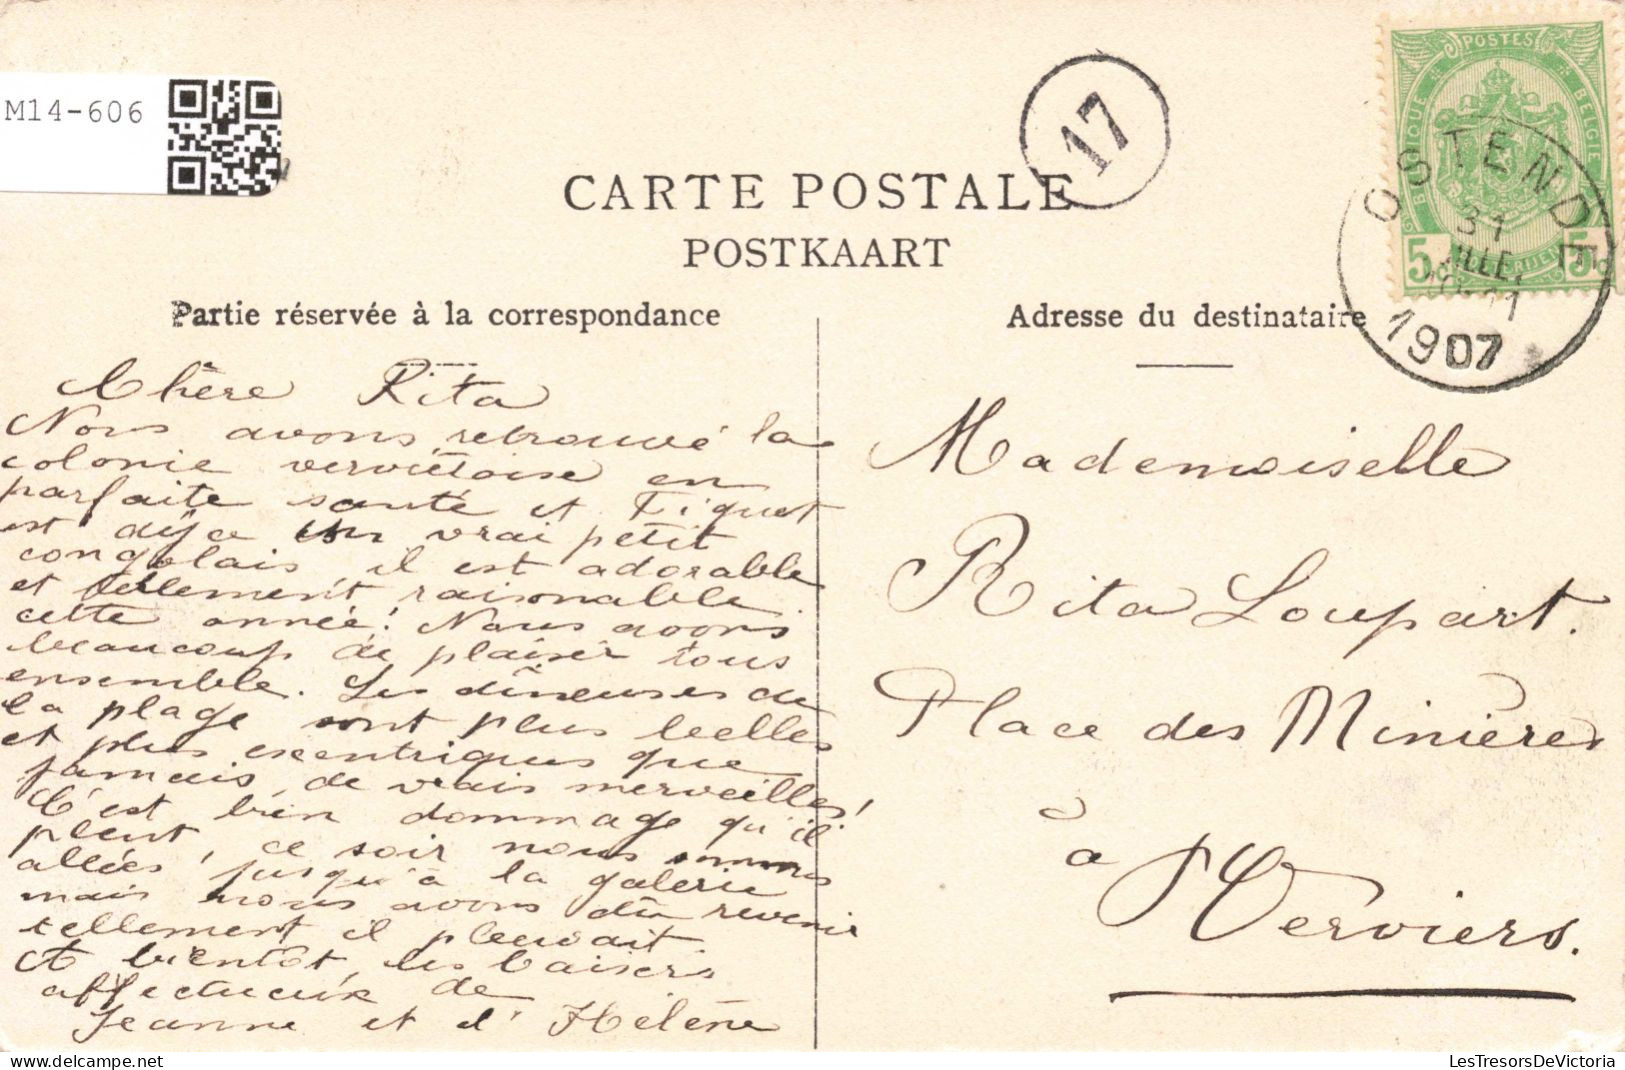 M14-606
17
CARTE POSTALE
POSTKAART
Partie réservée à la correspondance
Adresse du destinataire
POSTES
BELGIQUE
BELGIE
5 5
OSTENDE
31
1907
Chère Rita
Nous avons retrouvé la
colonie verviétoise en
parfaite santé et Fiquet
est déja un vrai petit
congolais il est adorable
et tellement raisonable
cette année! Nous avons
beaucoup de plaisir tous
ensemble. Les dîneuses de
la plage sont plus belles
et plus excentriques que
jamais, de vrais merveilles!
C'est bien dommage qu'il
pleut, ce soir nous sommes
allées jusqu'à la galerie
mais nous avons dû revenir
tellement il pleuvait.
A bientôt, les baisers
affectueux de
Jeanne et d'Hélène
Mademoiselle
Rita Loupart.
Place des Minières
à
Verviers.
LesTresorsDeVictoria